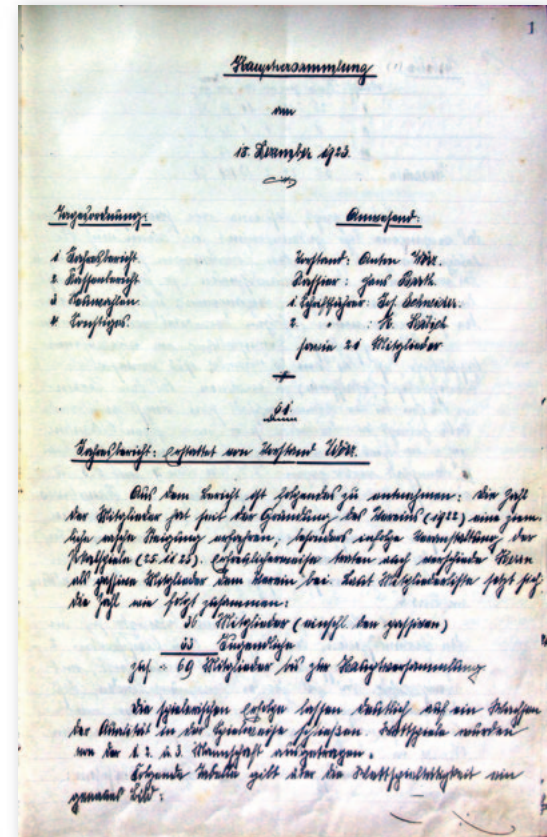 1
Hauptversammlung
am
18. Dezember 1923.
Tagesordnung:
Anwesend:
1. Jahresbericht.
2. Kassenbericht
3. Neuwahlen
4. Sonstiges.
Vorstand: Anton
Kassier: Hans
1. Schriftführer: Jos.
2. " :
sowie 20 Mitglieder
Jahresbericht: erstattet von Vorstand
Aus dem Bericht ist folgendes zu entnehmen: Die Zahl
der Mitglieder hat seit der Gründung des Vereins (1922) eine ziem-
liche rasche Steigung erfahren, besonders infolge Veranstaltung der
Pokalspiele (25. 11. 23). Erfreulicherweise traten auch verschiedene Herrn
als passive Mitglieder dem Verein bei. Laut Mitgliederliste setzt sich
die Zahl wie folgt zusammen:
36 Mitglieder (einschl. den passiven)
33 Jugendliche
zus. = 69 Mitglieder bis zur Hauptversammlung.
Die spielerischen Erfolge lassen deutlich auf ein Wachsen
der Qualität in der Spielweise schließen. Wettspiele wurden
von der 1. 2. u. 3. Mannschaft ausgetragen.
Folgende Tabelle gibt über die Wettspieltätigkeit ein
genaues Bild: